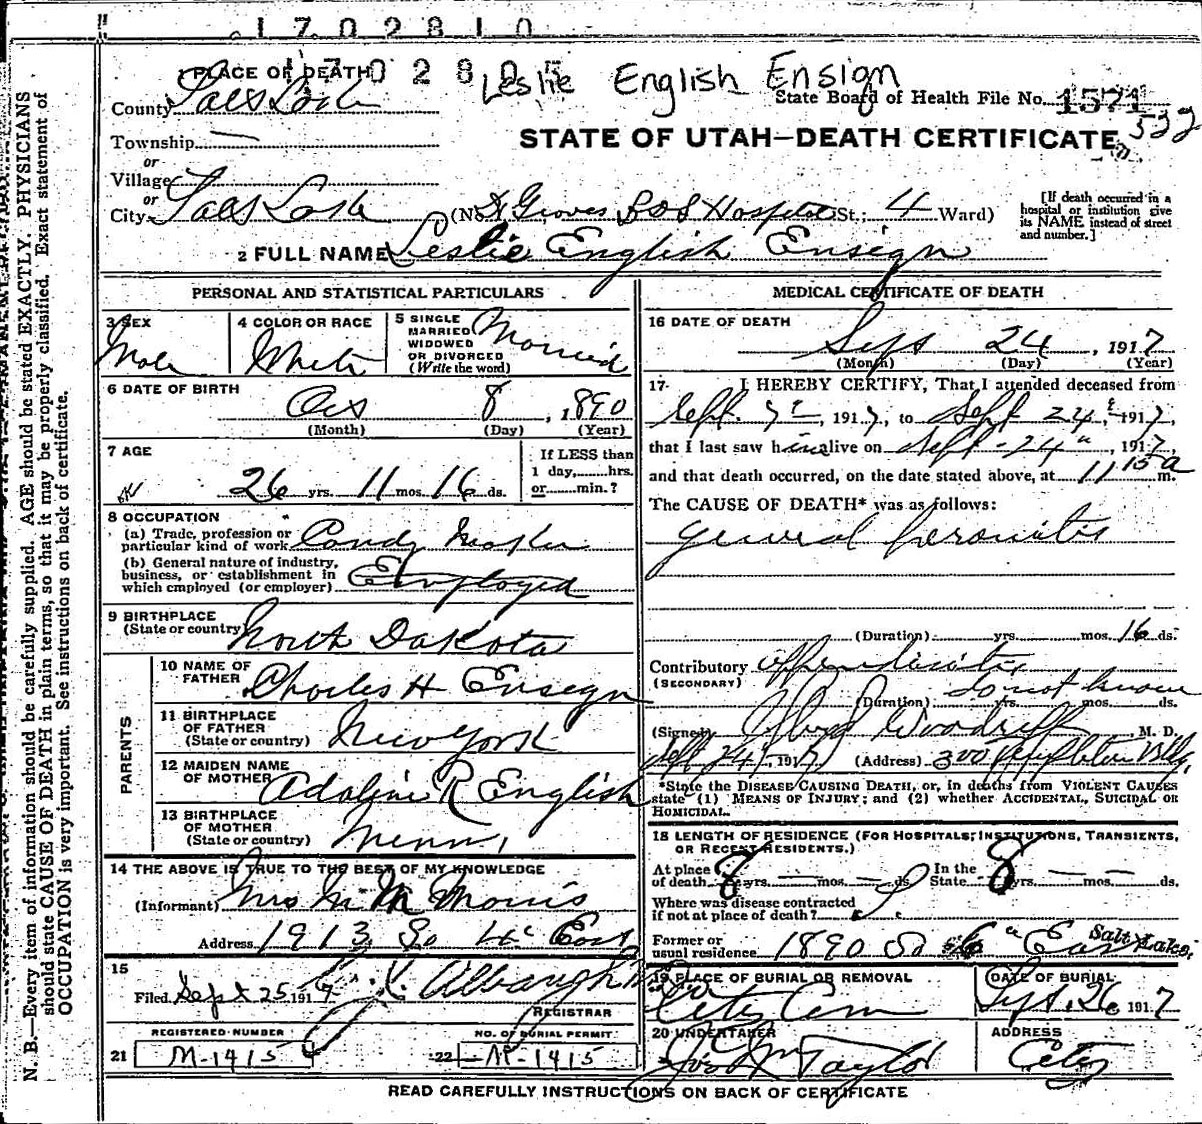 1702810
1 PLACE OF DEATH
1702805
Leslie English Ensign
County Salt Lake
State Board of Health File No. 1571
532
Township —
STATE OF UTAH—DEATH CERTIFICATE
or
Village
or
City Salt Lake (No. Groves LDS Hospital St.; 4 Ward)
[If death occurred in a hospital or institution give its NAME instead of street and number.]
2 FULL NAME Leslie English Ensign
PERSONAL AND STATISTICAL PARTICULARS
3 SEX
Male
4 COLOR OR RACE
White
5 SINGLE
MARRIED
WIDOWED
OR DIVORCED
(Write the word)
Married
6 DATE OF BIRTH
Oct 8, 1890
(Month) (Day) (Year)
7 AGE
26 yrs. 11 mos. 16 ds.
If LESS than
1 day,......hrs.
or......min.?
OK
8 OCCUPATION
(a) Trade, profession or
particular kind of work Candy Maker
(b) General nature of industry,
business, or establishment in
which employed (or employer) Employed
9 BIRTHPLACE
(State or country) North Dakota
PARENTS
10 NAME OF
FATHER Charles H Ensign
11 BIRTHPLACE
OF FATHER
(State or country) New York
12 MAIDEN NAME
OF MOTHER Adaline R English
13 BIRTHPLACE
OF MOTHER
(State or country) Minn,
14 THE ABOVE IS TRUE TO THE BEST OF MY KNOWLEDGE
(Informant) Mrs M M Morris
Address 1913 So 4th East
15
Filed Sept 25 1917
REGISTRAR
REGISTERED NUMBER
21 M-1415
NO. OF BURIAL PERMIT
22 M-1415
MEDICAL CERTIFICATE OF DEATH
16 DATE OF DEATH
Sept 24, 1917
(Month) (Day) (Year)
17 I HEREBY CERTIFY, That I attended deceased from
Sept. 9th, 1917, to Sept 24, 1917,
that I last saw him alive on Sept - 24th, 1917,
and that death occurred, on the date stated above, at 11 15 a m.
The CAUSE OF DEATH* was as follows:
General Peronitis
(Duration) yrs. mos. 16 ds.
Contributory appendicitis
(SECONDARY)
do not know
(Duration) yrs. mos. ds.
(Signed) Woodruff, M. D.
Sept 24, 1917 (Address) 300 Templeton Bldg.
*State the DISEASE CAUSING DEATH, or, in deaths from VIOLENT CAUSES
state (1) MEANS OF INJURY; and (2) whether ACCIDENTAL, SUICIDAL OR
HOMICIDAL.
18 LENGTH OF RESIDENCE (FOR HOSPITALS, INSTITUTIONS, TRANSIENTS,
OR RECENT RESIDENTS.)
At place
of death 8 yrs. — mos. — ds.
In the
State 8 yrs. — mos. — ds.
Where was disease contracted
if not at place of death?
Former or
usual residence 1890 So 6th East Salt Lake.
19 PLACE OF BURIAL OR REMOVAL
City Cem
DATE OF BURIAL
Sept. 26 1917
20 UNDERTAKER
Jos Wm Taylor
ADDRESS
City
READ CAREFULLY INSTRUCTIONS ON BACK OF CERTIFICATE
N. B.—Every item of information should be carefully supplied. AGE should be stated EXACTLY. PHYSICIANS
should state CAUSE OF DEATH in plain terms, so that it may be properly classified. Exact statement of
OCCUPATION is very important. See instructions on back of certificate.